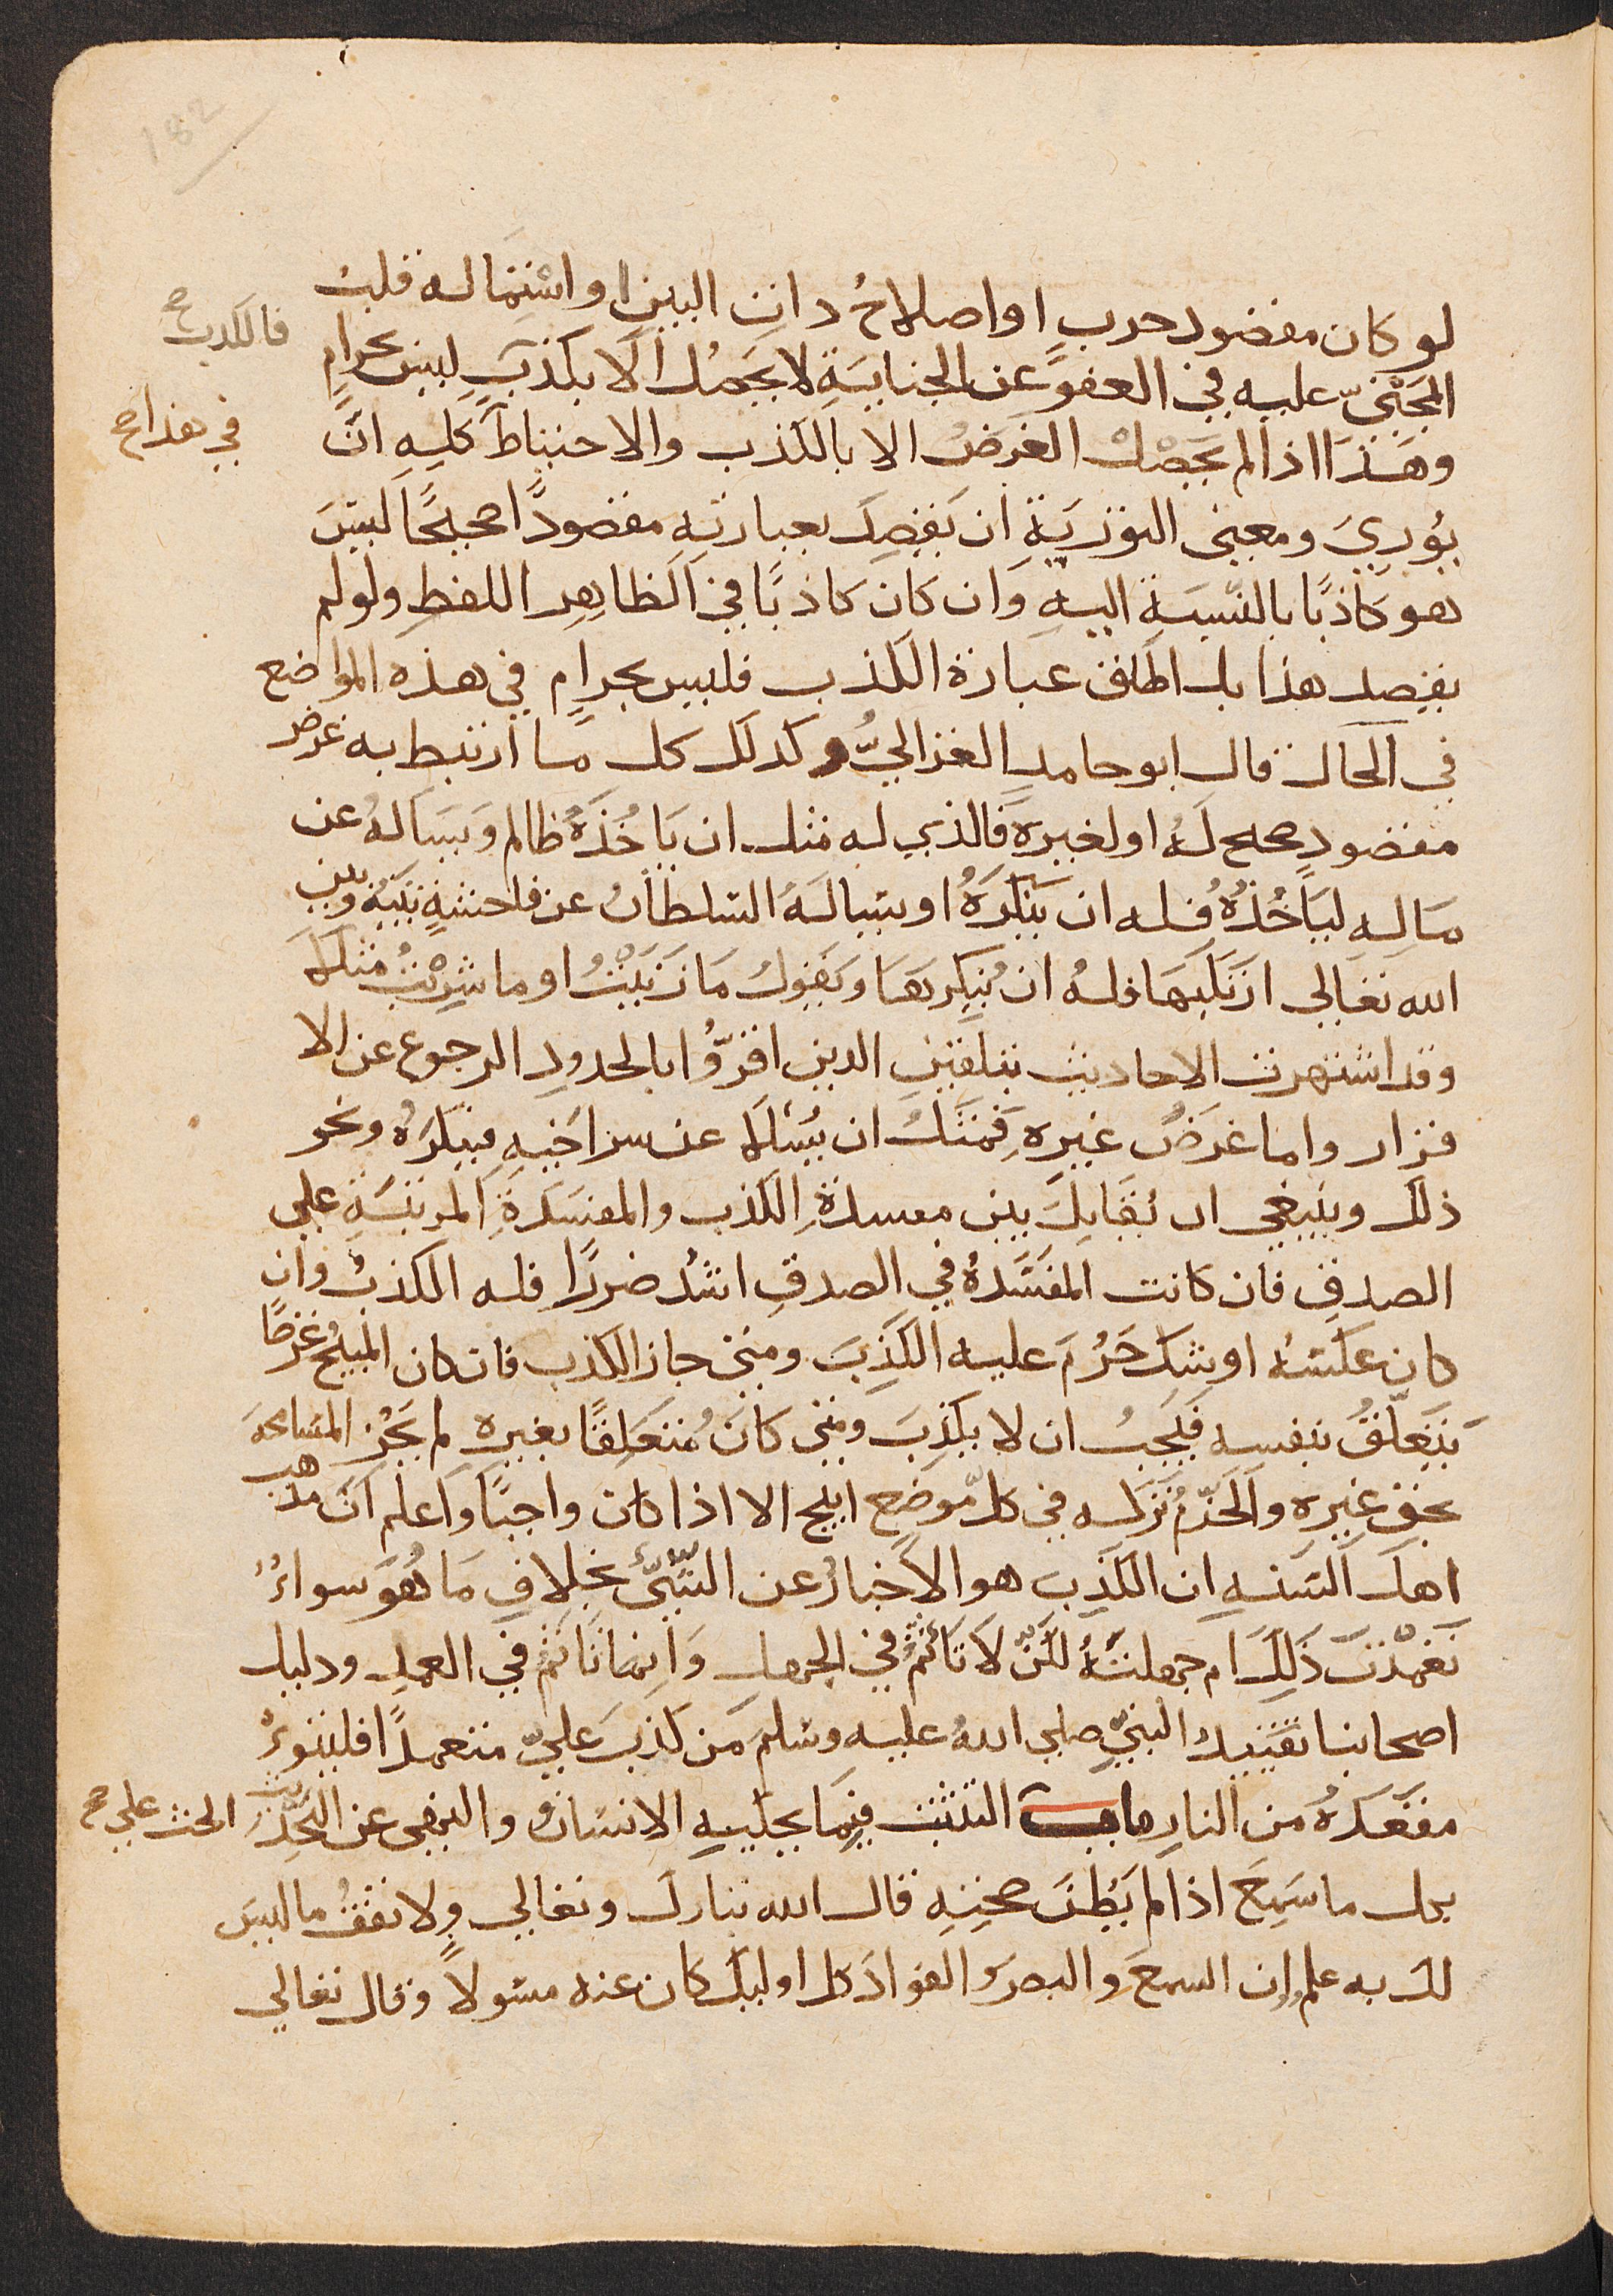 182
لو كان مقصود حرب او اصلاح ذات البين او استمالة قلب
المجنيّ عليه في العفو عن الجناية لا يحصل الا بكذب ليس بحرام
فالكذب صح
وهذا اذا لم يحصل الغرض الا بالكذب والاحتياط كله ان
في هذا صح
يوري ومعنى التورية ان يقصد بعبارته مقصودًا صحيحًا ليس
هو كاذبًا بالنسبة اليه وان كان كاذبًا في الظاهر اللفظ ولو لم
يقصد هذا بل اطلق عبارة الكذب فليس بحرام في هذه المواضع
في الحال قال ابو حامد الغزاليّ وكذلك كل ما ارتبط به غرض
مقصود صحيح له او لغيره فالذي له مثل ان ياخذه ظالم ويساله عن
ماله لياخذه فله ان ينكره او يساله السلطان عن فاحشة بينه وبين
الله تعالى ارتكبها فله ان ينكرها ويقول ما زنيت او ما شربت مثلا
وقد اشتهرت الاحاديث بتلقين الذين اقرّوا بالحدود الرجوع عن الا
قرار واما غرض غيره فمثل ان يسل عن سر اخيه فينكره ونحو
ذلك وينبغي ان يقابل بين مفسدة الكذب والمفسدة المرتبة على
الصدق فان كانت المفسدة في الصدق اشد ضررًا فله الكذب وان
كان عكسه او شك حرم عليه الكذب ومتى جاز الكذب فان كان المبيح غرضًا
يتعلّق بنفسه فيجب ان لا يكذب ومتى كان متعلقًا بغيره لم يجز المسامحة
بحق غيره والحزم تركه في كل موضع ابيح الا اذا كان واجبًا واعلم ان مذهب
اهل السنه ان الكذب هو الاخبار عن الشيء بخلاف ما هو سواء
تعمدت ذلك ام جهلته لكن لا تاثم في الجهل وانما تاثم في العمد ودليل
اصحابنا تقييد النبي صلى الله عليه وسلم من كذب عليّ متعمدًا فليتبوء
مقعده من النار باب التثبت فيما يحكيه الانسان والنهي عن التحديث
الحث على صح
بكل ما سمع اذا لم يظن صحته قال الله تبارك وتعالى ولا تقف ما ليس
لك به علم ان السمع والبصر والفواد كل اوليك كان عنه مسولًا وقال تعالى